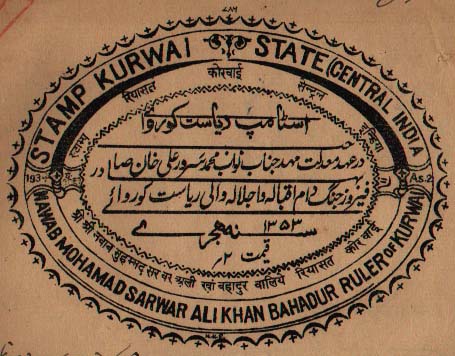 ۷۸۶
STAMP KURWAI STATE (CENTRAL INDIA
रियासत कोरवाई सेन्ट्रल इन्डिया
اسٹامپ ریاست کوروائی
در عہد معدلت مہد جناب نواب محمد سرور علی خان صاحب بہادر
فیروز جنگ دام اقبالہ واجلالہ والی ریاست کوروائے
۱۳۵۳ سنہ ہجری
قیمت ۲؍
193-
As.2
श्री श्री नवाब मुहम्मद सरवर अली खां बहादुर वालिये रियासत कोरवाई
NAWAB MOHAMAD SARWAR ALI KHAN BAHADUR RULER OF KURWAI